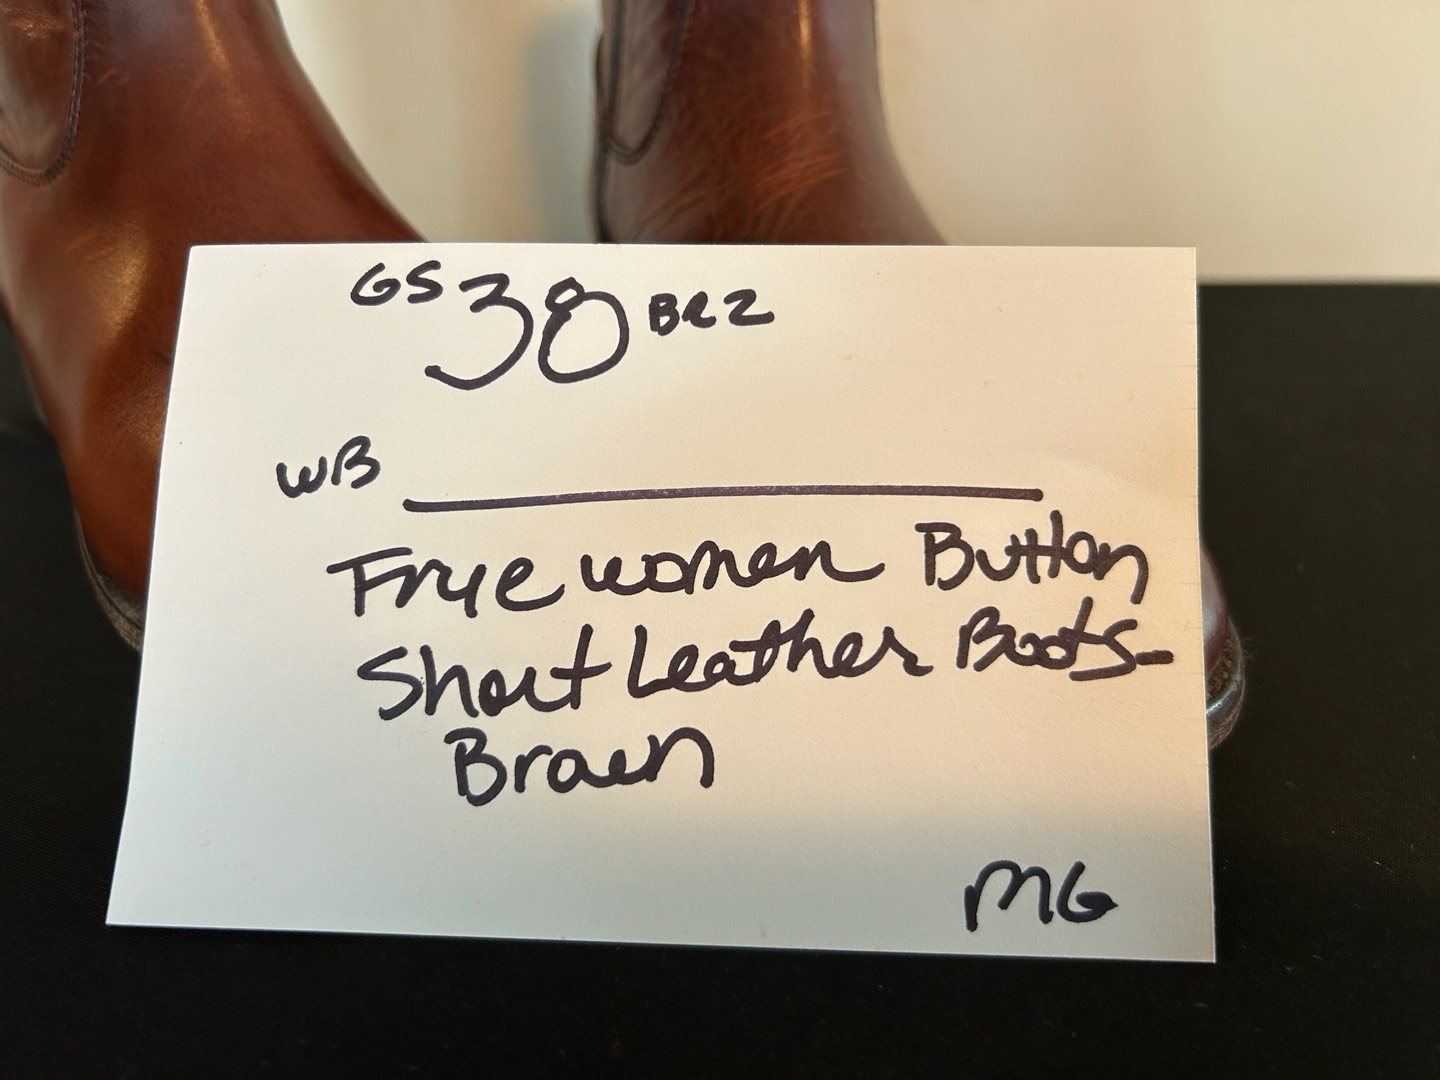 GS 38 BRZ
WB
Frye women Button
Short Leather Boots-
Brown
MG